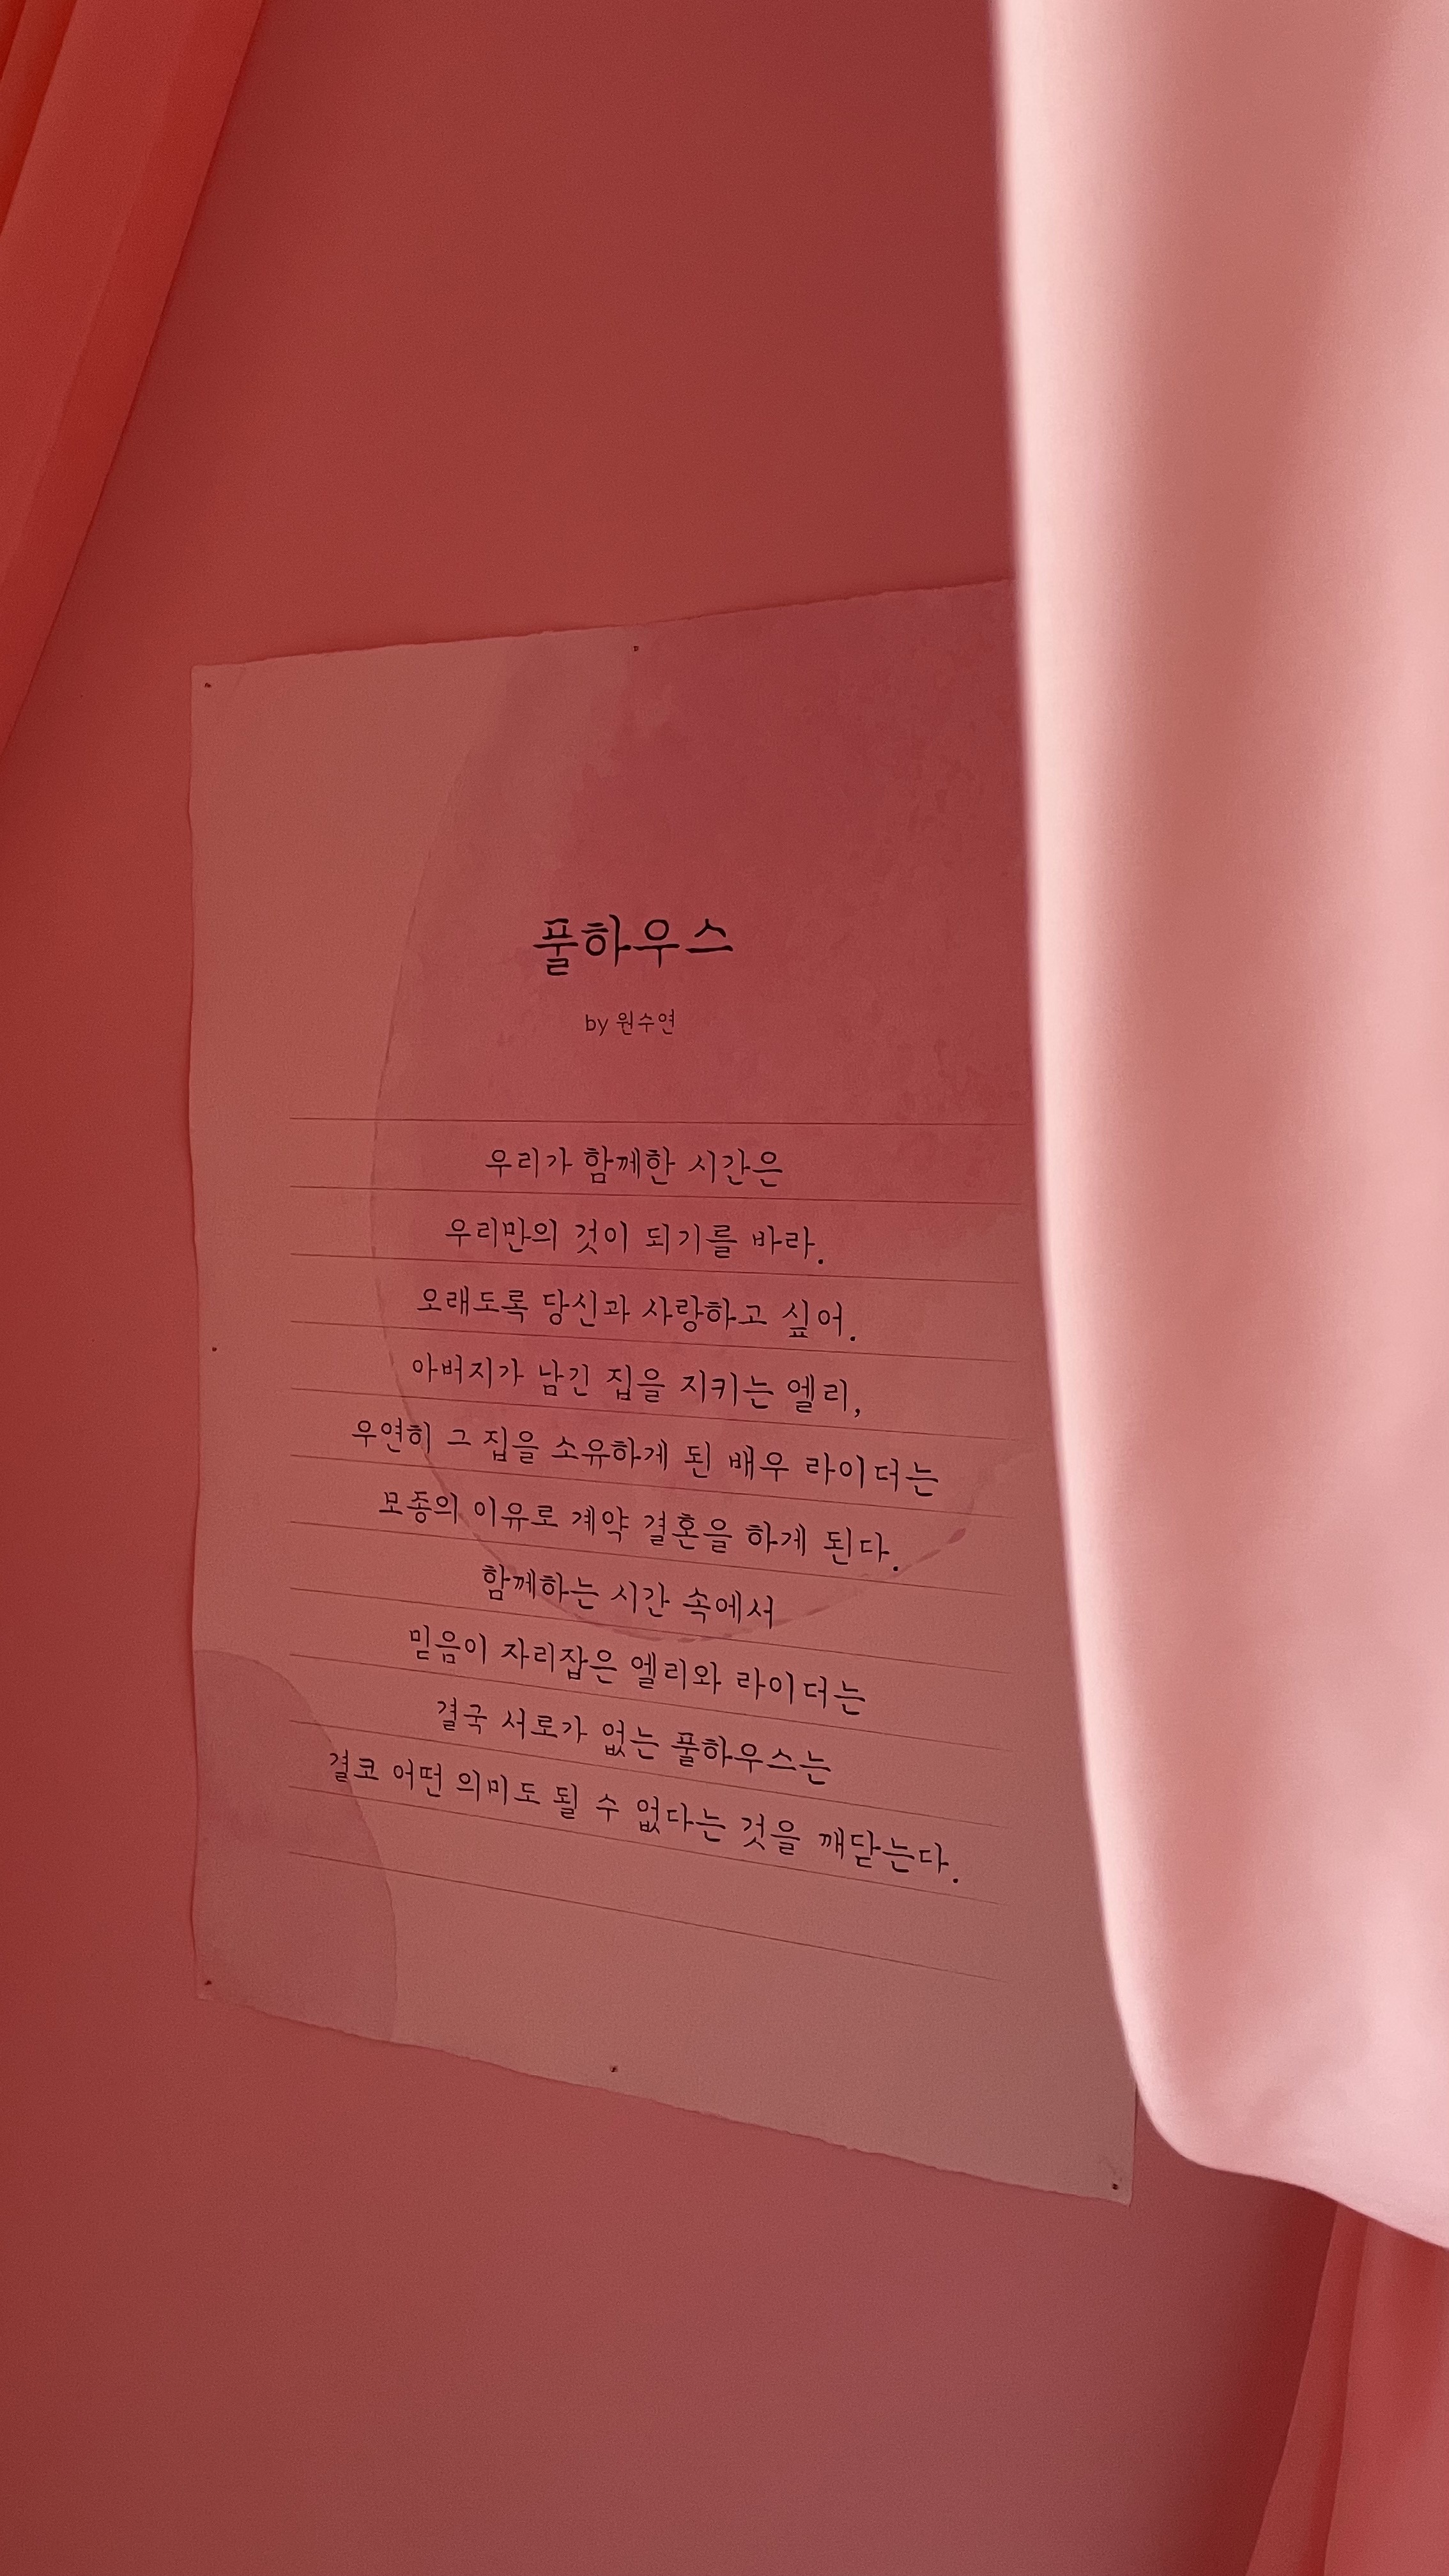 풀하우스
by 원수연
우리가 함께한 시간은
우리만의 것이 되기를 바라.
오래도록 당신과 사랑하고 싶어.
아버지가 남긴 집을 지키는 엘리,
우연히 그 집을 소유하게 된 배우 라이더는
모종의 이유로 계약 결혼을 하게 된다.
함께하는 시간 속에서
믿음이 자리잡은 엘리와 라이더는
결국 서로가 없는 풀하우스는
결코 어떤 의미도 될 수 없다는 것을 깨닫는다.